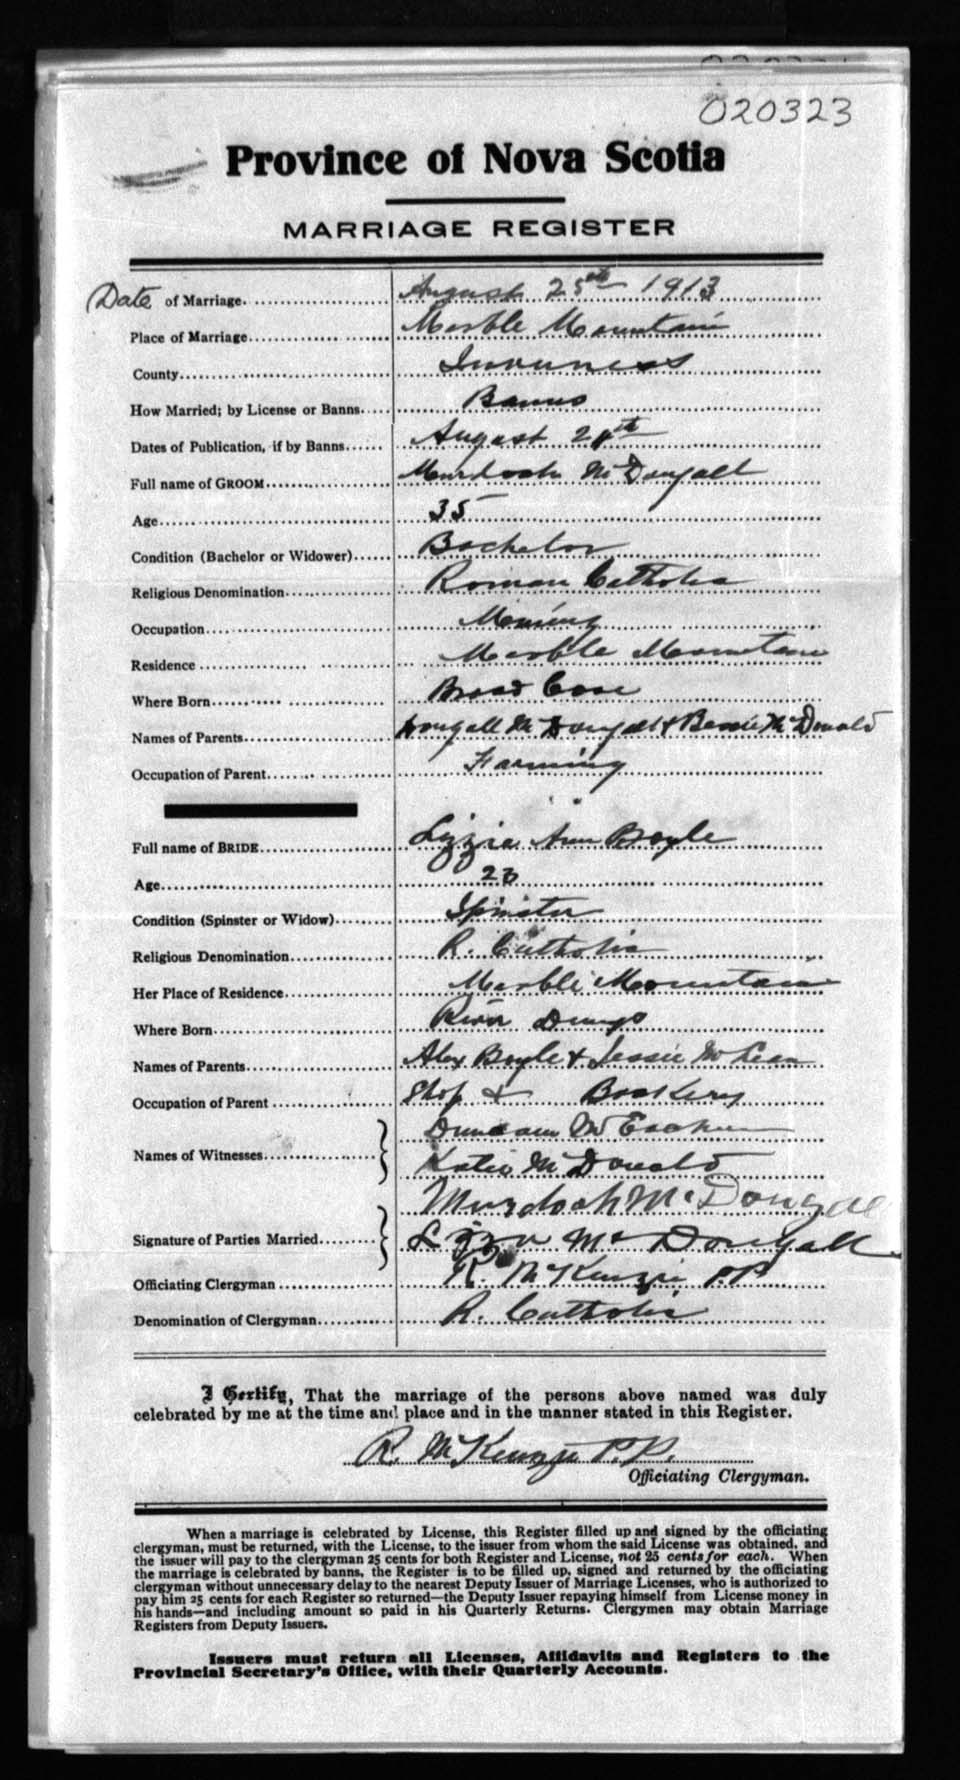 020323
Province of Nova Scotia
MARRIAGE REGISTER
Date of Marriage August 25th 1913
Place of Marriage Marble Mountain
County Inverness
How Married; by License or Banns Banns
Dates of Publication, if by Banns August 24th
Full name of GROOM Murdoch McDougall
Age 35
Condition (Bachelor or Widower) Bachelor
Religious Denomination Roman Catholic
Occupation Mining
Residence Marble Mountain
Where Born Broad Cove
Names of Parents Dougall McDougall & Bessie McDonald
Occupation of Parent Farming
Full name of BRIDE Lizzie Ann Boyle
Age 23
Condition (Spinster or Widow) Spinster
Religious Denomination R. Catholic
Her Place of Residence Marble Mountain
Where Born River Denys
Names of Parents Alex Boyle & Jessie McLean
Occupation of Parent Shop &
Names of Witnesses Duncan McEachern
Katie McDonald
Murdoch McDougall
Signature of Parties Married McDougall
Officiating Clergyman R. McKenzie P.P.
Denomination of Clergyman R. Catholic
I Certify, That the marriage of the persons above named was duly
celebrated by me at the time and place and in the manner stated in this Register.
R. McKenzie P.P.
Officiating Clergyman.
When a marriage is celebrated by License, this Register filled up and signed by the officiating
clergyman, must be returned, with the License, to the issuer from whom the said License was obtained, and
the issuer will pay to the clergyman 25 cents for both Register and License, not 25 cents for each. When
the marriage is celebrated by banns, the Register is to be filled up, signed and returned by the officiating
clergyman without unnecessary delay to the nearest Deputy Issuer of Marriage Licenses, who is authorized to
pay him 25 cents for each Register so returned—the Deputy Issuer repaying himself from License money in
his hands—and including amount so paid in his Quarterly Returns. Clergymen may obtain Marriage
Registers from Deputy Issuers.
Issuers must return all Licenses, Affidavits and Registers to the
Provincial Secretary's Office, with their Quarterly Accounts.